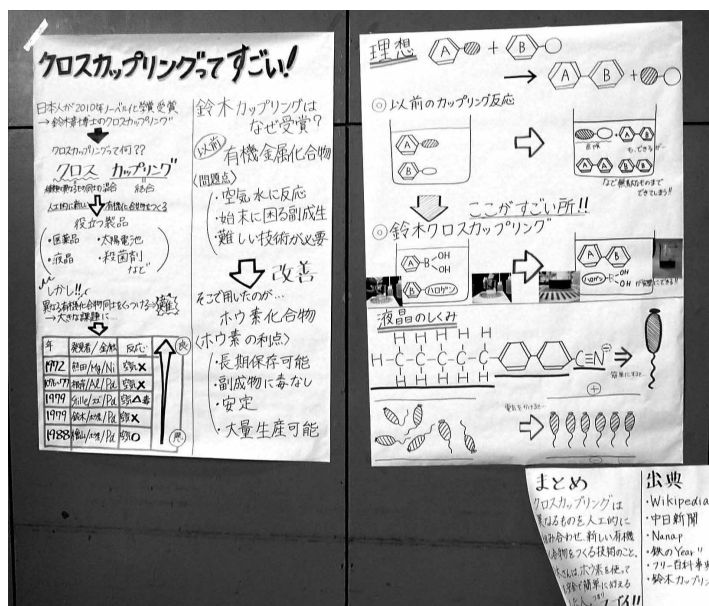 クロスカップリングってすごい!
日本人が2010年ノーベル化学賞受賞
→鈴木章博士のクロスカップリング
クロスカップリングって何??
クロス カップリング
結合
人工的に新しい有機化合物をつくる
役立つ製品
・医薬品 ・太陽電池
・液晶 ・殺菌剤
など
しかし!!
異なる有機化合物同士をくっつける→
→大きな課題に…
年 発見者/金属 反応
1972 熊田/Mg/Ni X
根岸/Al/Pd X
1979 Stille/スズ/Pd △ 毒
1979 鈴木/ホウ素/Pd X
1988 檜山/ケイ素/Pd O
良
悪
鈴木カップリングは
なぜ受賞?
以前 有機金属化合物
〈問題点〉
・空気水に反応
・始末に困る副成生
・難しい技術が必要
改善
そこで用いたのが…
ホウ素化合物
〈ホウ素の利点〉
・長期保存可能
・副成物に毒なし
・安定
・大量生産可能
理想 A + B
→ A B +
◎以前のカップリング反応
A
B
A B
A A B B
など無駄なものまで
できてしまう!!
ここがすごい所!!
◎鈴木クロスカップリング
A B OH
OH
B ハロゲン
A B
ハロゲン B OH
OH
液晶のしくみ
H H H H H
H-C-C-C-C-C- -C≡N ⊖
H H H H H
⊕
簡単にすると…
電気をかけると…
まとめ
クロスカップリングは
異なるものを人工的に
組み合わせ、新しい有機
化合物をつくる技術のこと。
ホウ素を使って
出典
・Wikipedia
・中日新聞
・Nanap
・鉄のYear!!
・フリー百科事
・鈴木カップリン